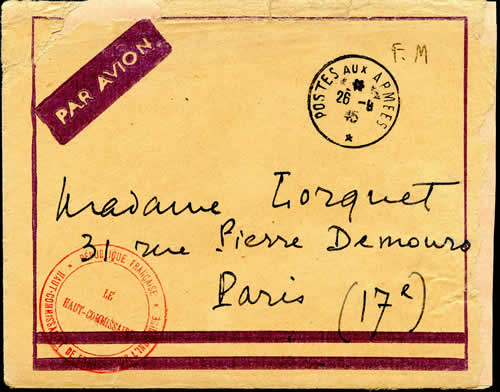 PAR AVION
F. M
POSTES AUX ARMEES
26 -8
45
*
Madame Torquet
31 rue Pierre Demours
Paris (17e)
* RÉPUBLIQUE FRANÇAISE *
HAUT-COMMISSA
LE
HAUT-COMMISSAIRE